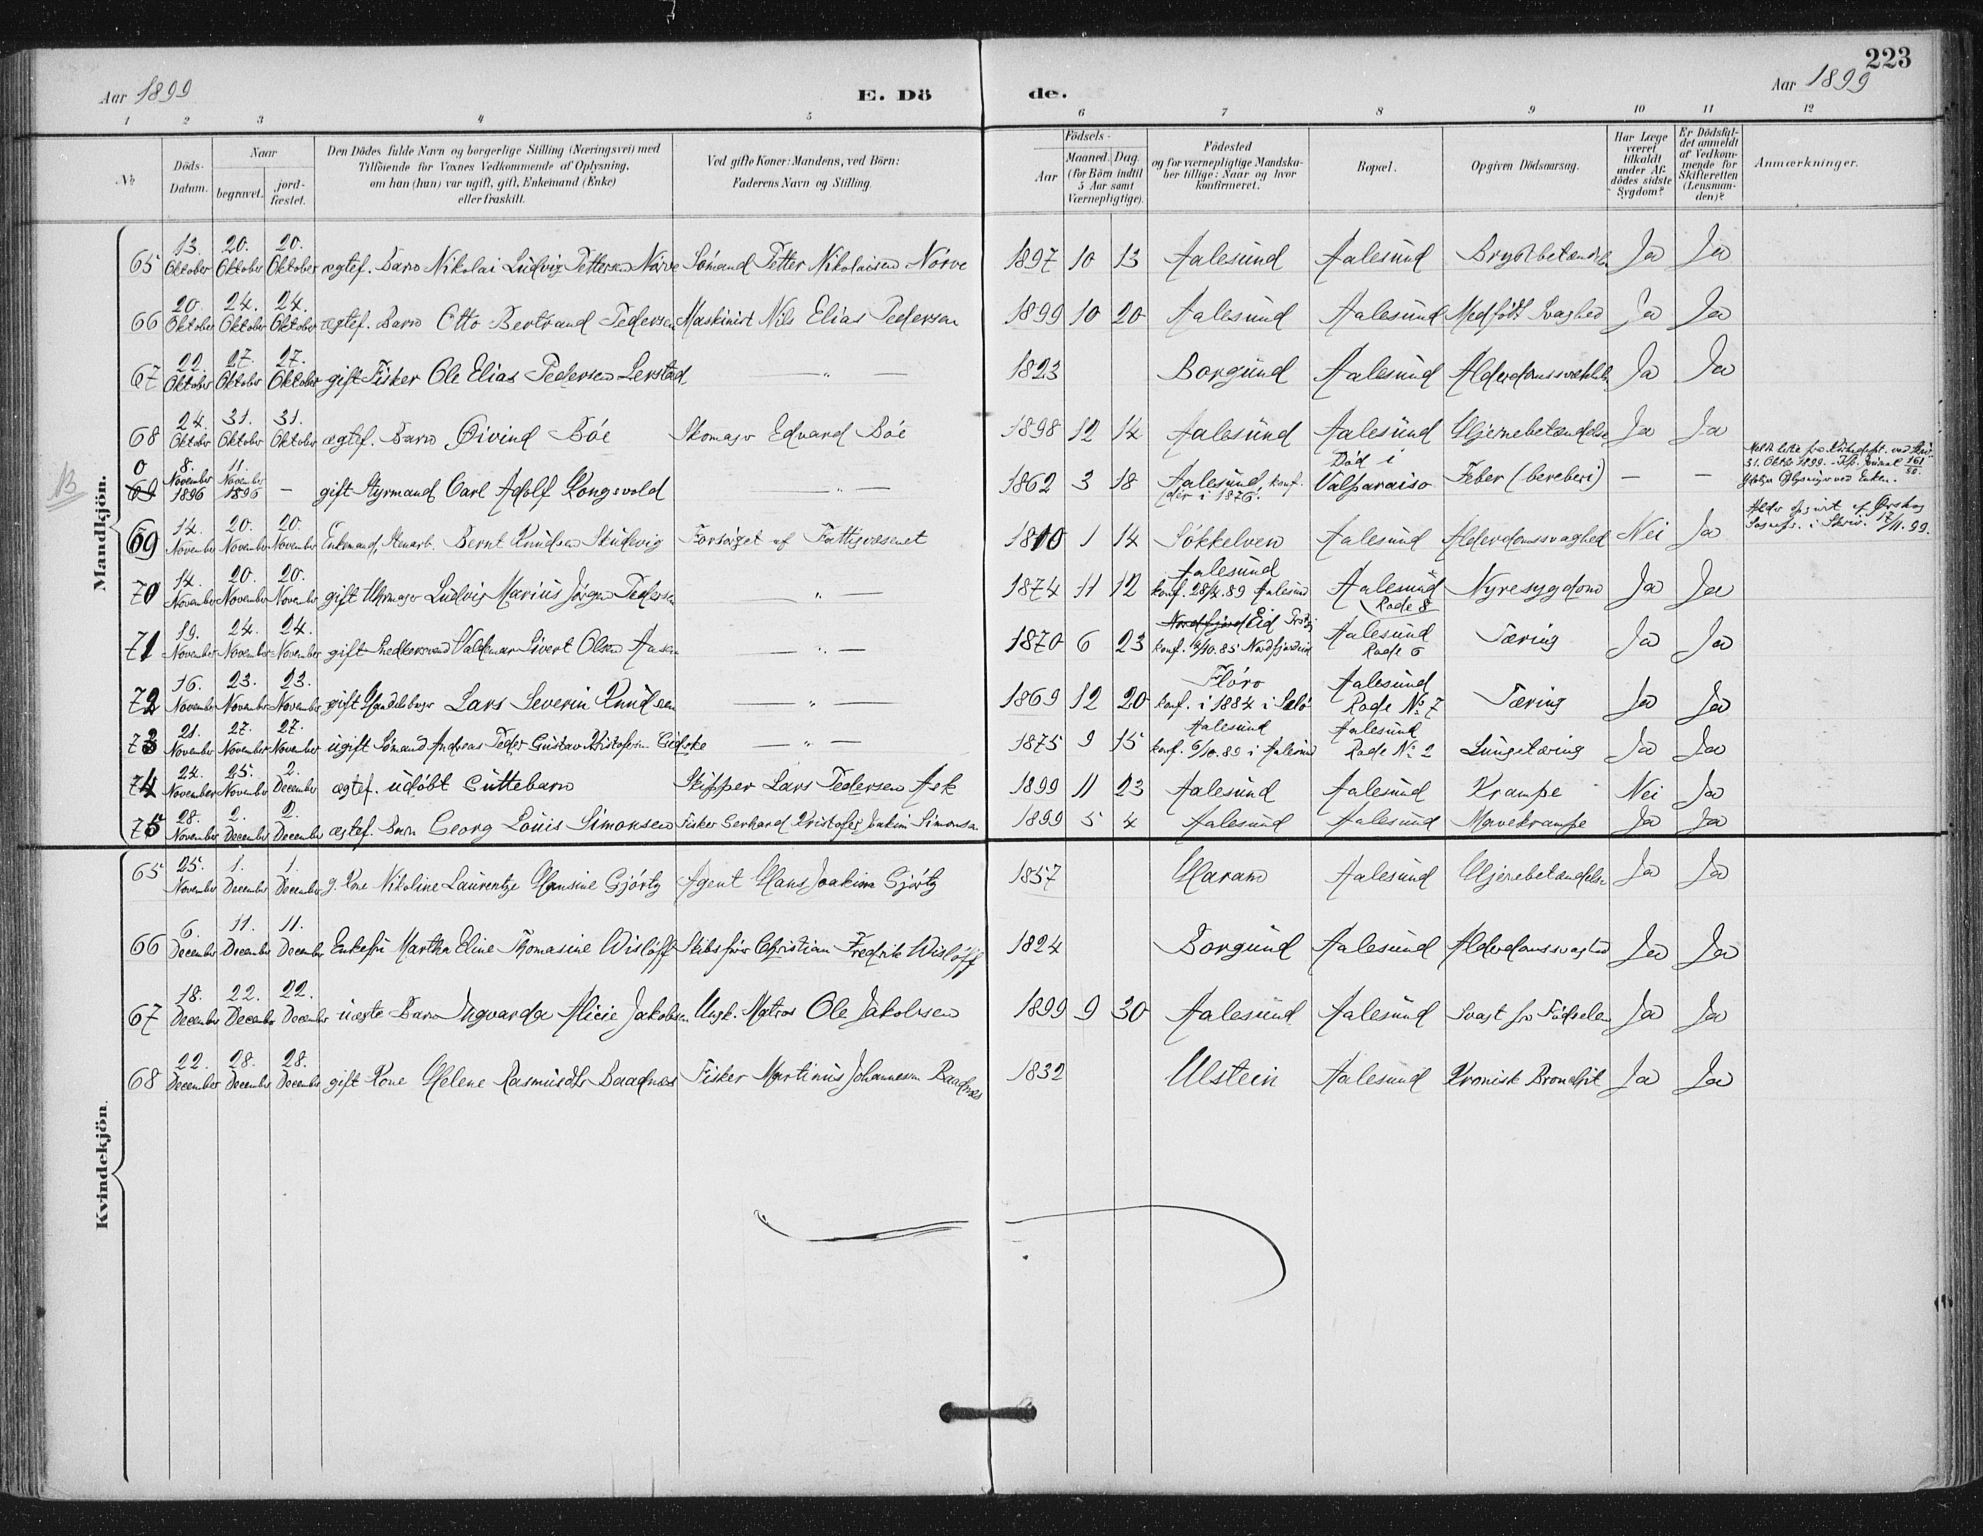 223
Aar 1899 E. Dö de. Aar 1899
1 2 3 4 5 6 7 8 9 10 11 12
№ Döds-Datum. Naar begravet. jord-fæstet. Den Dödes fulde Navn og borgerlige Stilling (Næringsvei) med Tilföiende for Voxnes Vedkommende af Oplysning, om han (hun) var ugift, gift, Enkemand (Enke) eller fraskilt. Ved gifte Koner: Mandens, ved Börn: Faderens Navn og Stilling. Födsels- Aar Maaned. Dag. (for Börn indtil 5 Aar samt Værnepligtige). Födested og for værnepligtige Mandskaber tillige: Naar og hvor konfirmeret. Bopæl. Opgiven Dödsaarsag. Har Læge været tilkaldt under Afdödes sidste Sygdom? Er Dödsfaldet anmeldt af Vedkommende for Skifteretten (Lensmanden)? Anmærkninger.
Mandkjön.
65 13. Oktober 20. Oktober 20. Oktober ægtef. Barn Nikolai Ludvig Pettersen Nørve Sømand Petter Nikolaisen Nørve 1897 10 13 Aalesund Aalesund Ja Ja
66 20. Oktober 24. Oktober 24. Oktober ægtef. Barn Otto Bertrand Pedersen Maskinist Nils Elias Pedersen 1899 10 20 Aalesund Aalesund Medfødt Svaghed Ja Ja
67 22. Oktober 27. Oktober 27. Oktober gift Fisker Ole Elias Pedersen Lerstad — " — 1823 Borgund Aalesund Ja Ja
68 24. Oktober 31. Oktober 31. Oktober ægtef. Barn Øivind Bøe Skomager Edvard Bøe 1898 12 14 Aalesund Aalesund Hjernebetændelse Ja Ja
0 69 8. November 1896 11. November 1896 — gift Styrmand Carl Adolf Kongsvold — " — 1862 3 18 Aalesund, konf. der i 1876. Død i Valparaiso Feber (bereberi) — —
31. Oktbr 1899. Journal 161
69 14. November 20. November 20. November Enkemand, Bernt Knudsen Forsørget af Fattigvæsenet 1810 1 14 Søkkelven Aalesund Alderdomssvaghed Nei Ja
70 14. November 20. November 20. November gift Uhrmager Ludvig Marius Jørgen Pedersen — " — 1874 11 12 Aalesund konf. 28/4. 89 Aalesund Aalesund Rode 8 Nyresygdom Ja Ja
71 19. November 24. November 24. November gift Snedkersvend Valdemar Sivert Olsen Aasen — " — 1870 6 23 Nordfjord Eid konf. Aalesund Rode 6 Tæring Ja Ja
72 16. November 23. November 23. November gift Lars Severin Knudsen — " — 1869 12 20 Florø konf. i 1884 i Aalesund Rode № 7 Tæring Ja Ja
73 21. November 27. November 27. November ugift Sømand Andreas Peder Gustav Kristofersen Giske — " — 1875 9 15 Aalesund konf. 6/10. 89 i Aalesund Aalesund Rode № 2 Lungetæring Ja Ja
74 24. November 25. November 2. December ægtef. udøbt Guttebarn Skipper Lars Pedersen Ask 1899 11 23 Aalesund Aalesund Krampe Nei Ja
75 28. November 2. December 2. December ægtef. Barn Georg Louis Simonsen Fisker Gerhard Kristofer Joakim Simonsen 1899 5 4 Aalesund Aalesund Mavekrampe Ja Ja
Kvindekjön.
65 25. November 1. December 1. December g. Kone Nikoline Laurentze Hansine Gjørtz Agent Hans Joakim Gjørtz 1857 Haram Aalesund Hjernebetændelse Ja Ja
66 6. December 11. December 11. December Enkefru Martha Eline Thomasine Wisløff Skibsfører Christian Fredrik Wisløff 1824 Borgund Aalesund Alderdomssvaghed Ja Ja
67 18. December 22. December 22. December uægte Barn Ingvarda Alicie Jakobsen Ungk. Matros Ole Jakobsen 1899 9 30 Aalesund Aalesund Svag fra Fødselen Ja Ja
68 22. December 28. December 28. December gift Kone Helene Rasmusdtr Baadnæs Fisker Martinus Johannesen Baadnæs 1832 Ulstein Aalesund Kronisk Bronchit Ja Ja